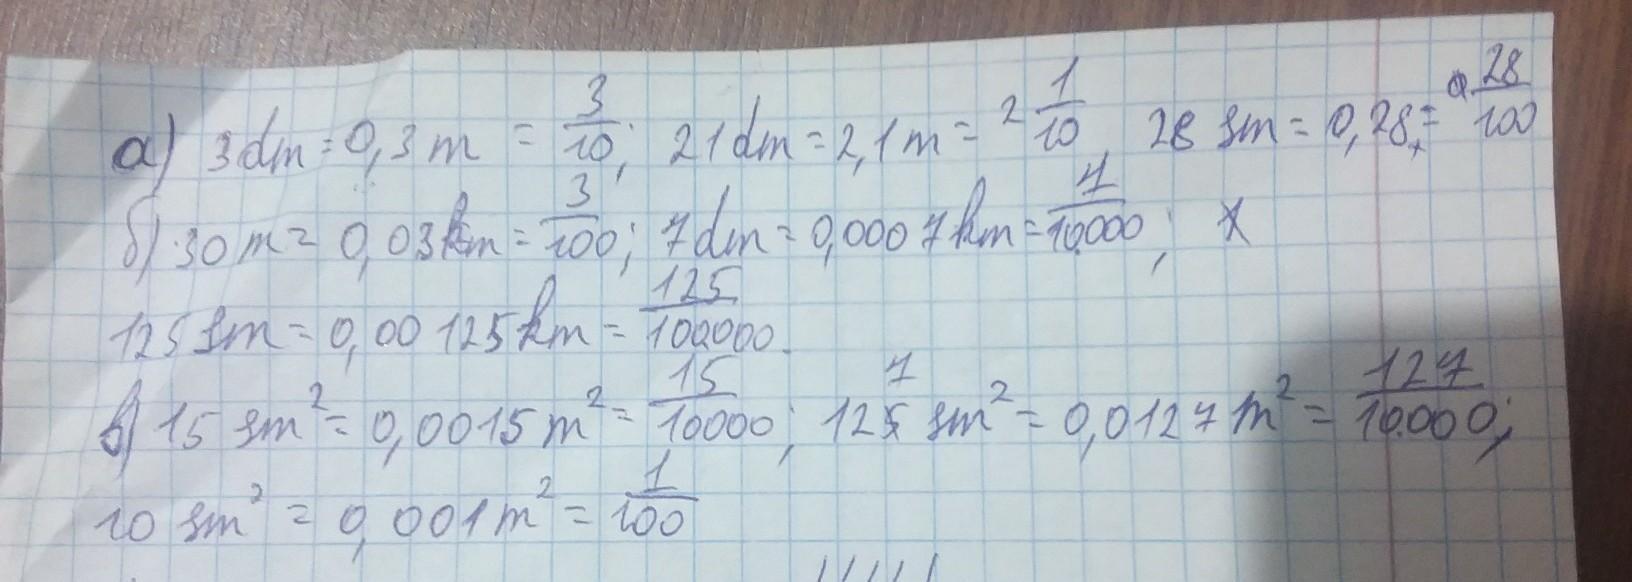 а) 3 dm = 0,3 m = 3/10; 21 dm = 2,1 m = 2 1/10, 28 sm = 0,28 = 28/100
б) 30 m = 0,03 km = 3/100; 7 dm = 0,0007 km = 7/10000;
125 sm = 0,00125 km = 125/100000.
в) 15 sm² = 0,0015 m² = 15/10000; 127 sm² = 0,0127 m² = 127/10000;
10 sm² = 0,001 m² = 1/100